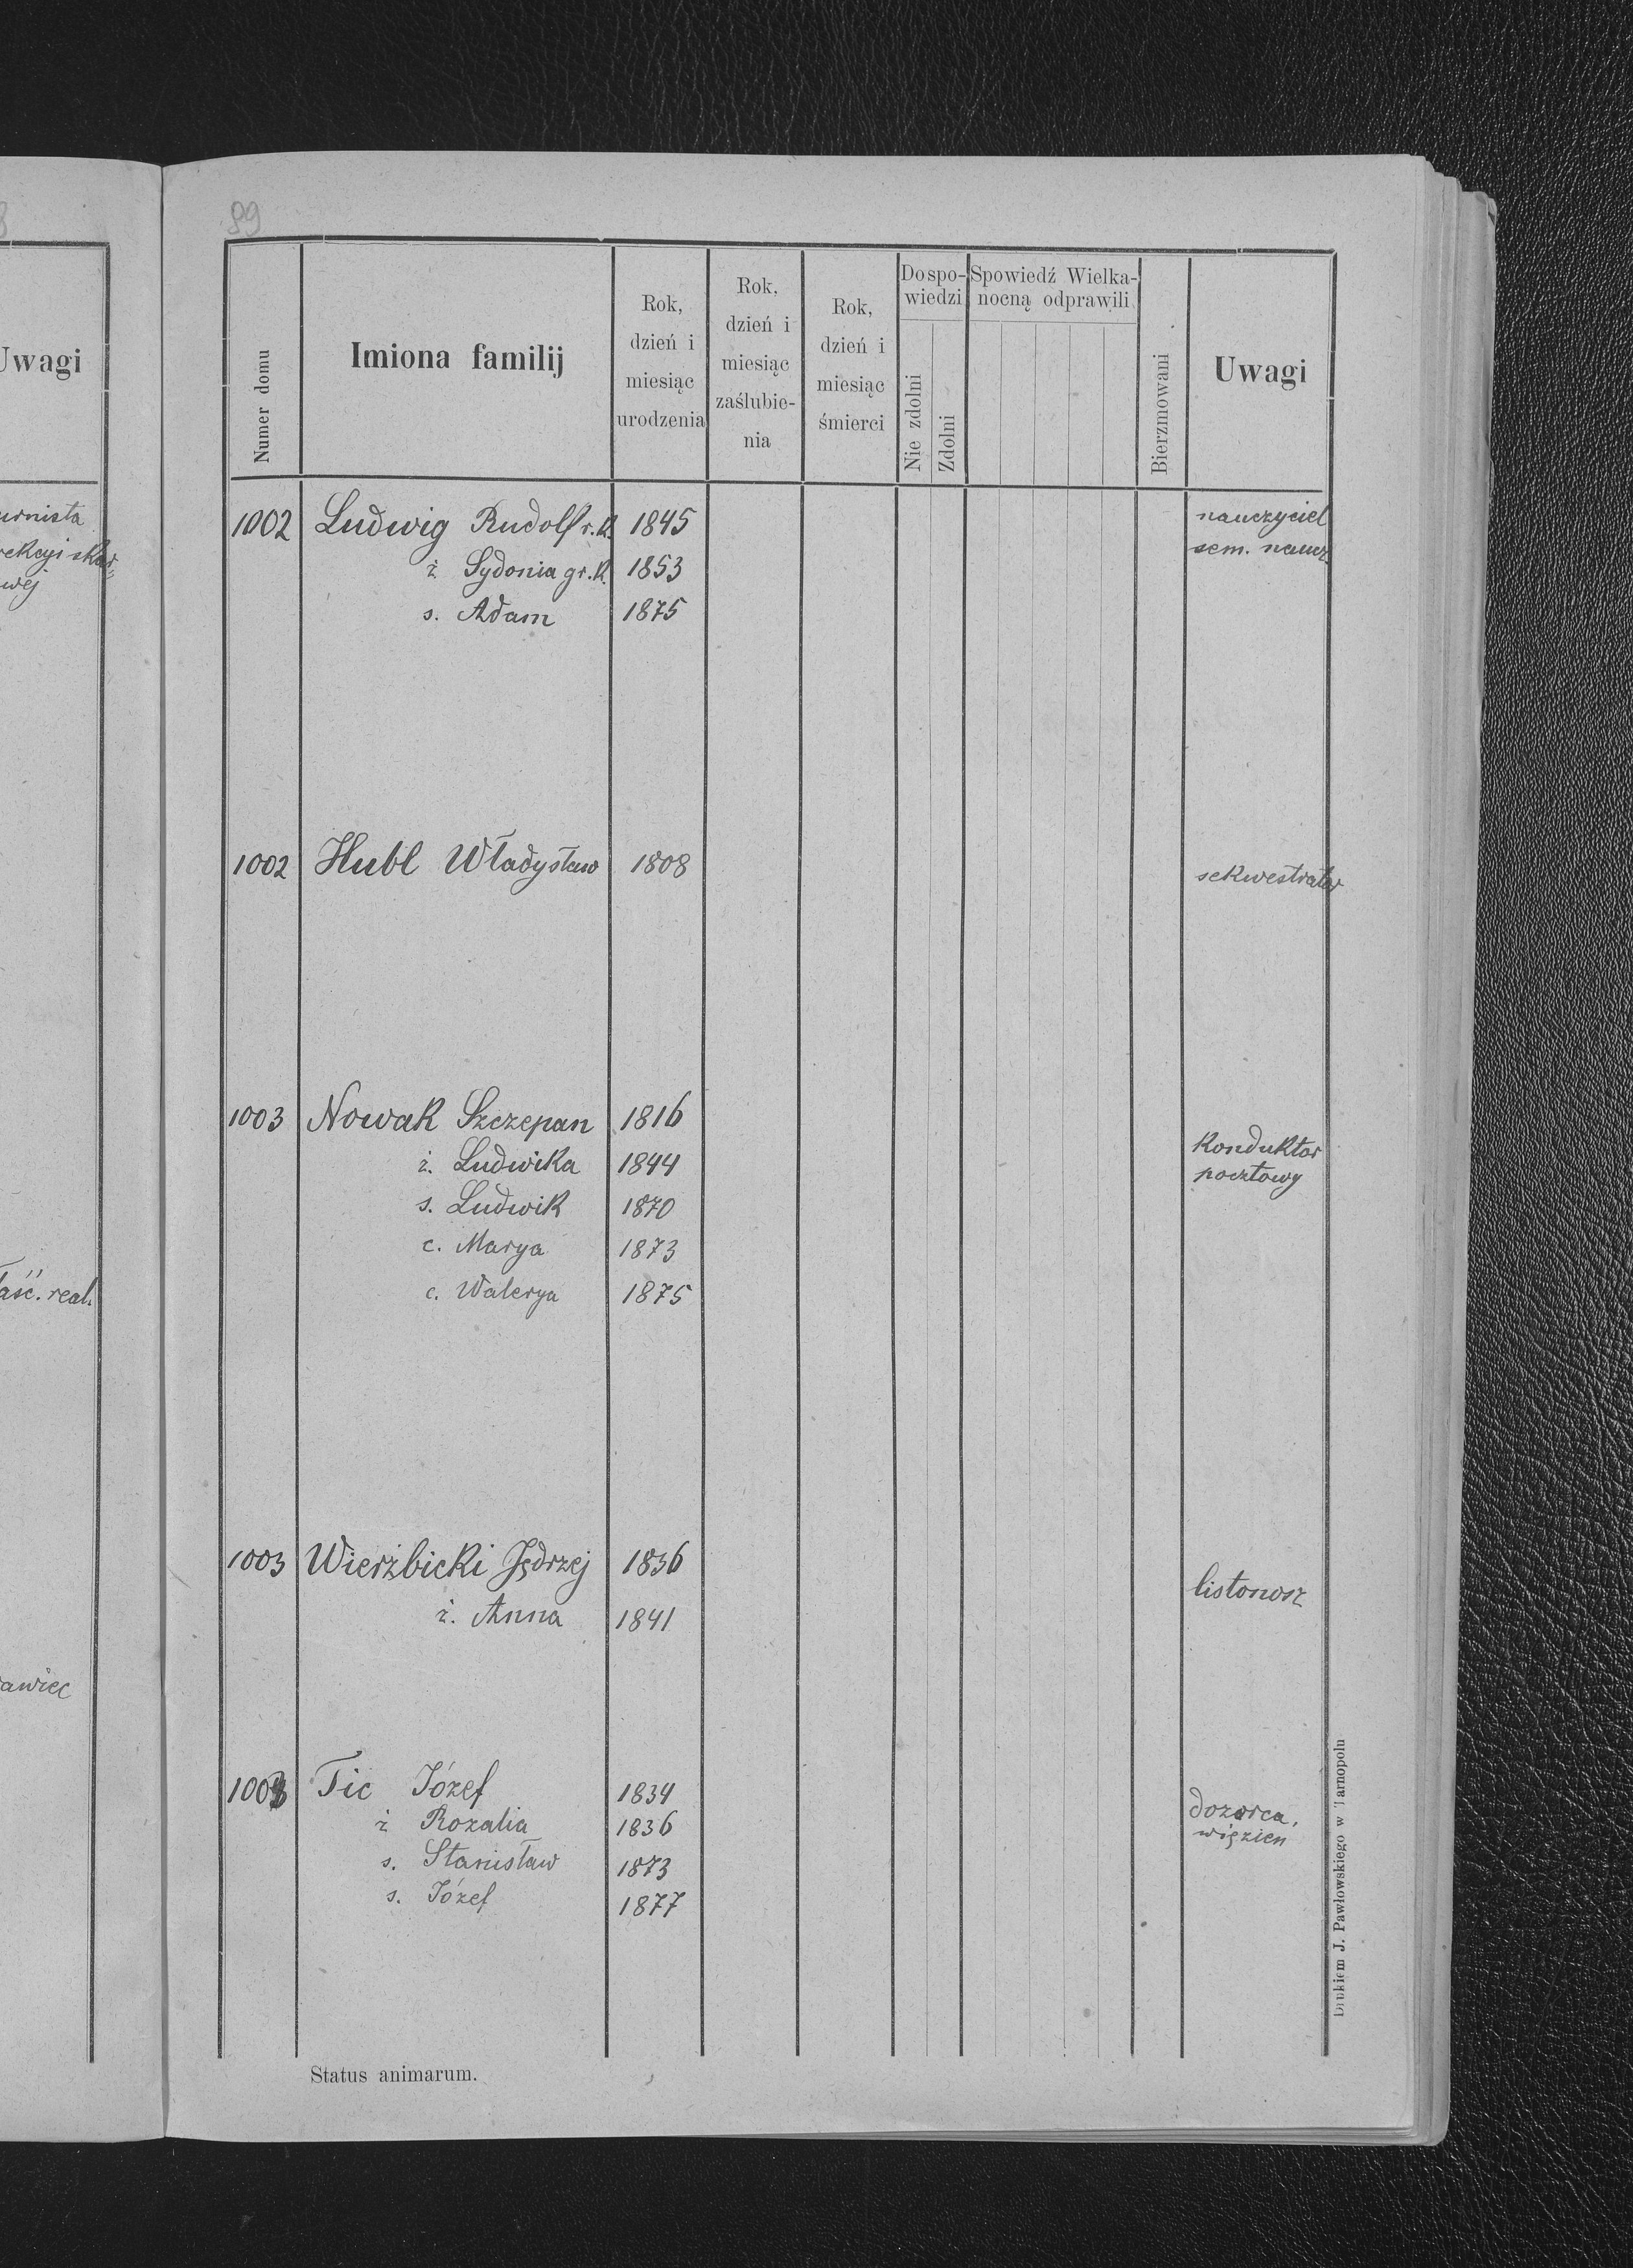 89
Uwagi
aść. real.
awiec
Numer domu
Imiona familij
Rok, dzień i miesiąc urodzenia
Rok, dzień i miesiąc zaślubie-nia
Rok, dzień i miesiąc śmierci
Do spo-wiedzi
Nie zdolni
Zdolni
Spowiedź Wielka-nocną odprawili
Bierzmowani
Uwagi
1002 Ludwig Rudolf r.k. 1845 nauczyciel
ż Sydonia gr.k. 1853 sem. naucz
s. Adam 1875
1002 Hubl Władysław 1808 sekwestrator
1003 Nowak Szczepan 1816
ż. Ludwika 1844 konduktor
s. Ludwik 1870 pocztowy
c. Marya 1873
c. Walerya 1875
1003 Wierżbicki Jędrzej 1836 listonosz
ż. Anna 1841
Tic Józef 1834 dozorca
ż Rozalia 1836 więzien
s. Stanisław 1873
s. Józef 1877
Status animarum.
Drukiem J. Pawłowskiego w Tarnopolu